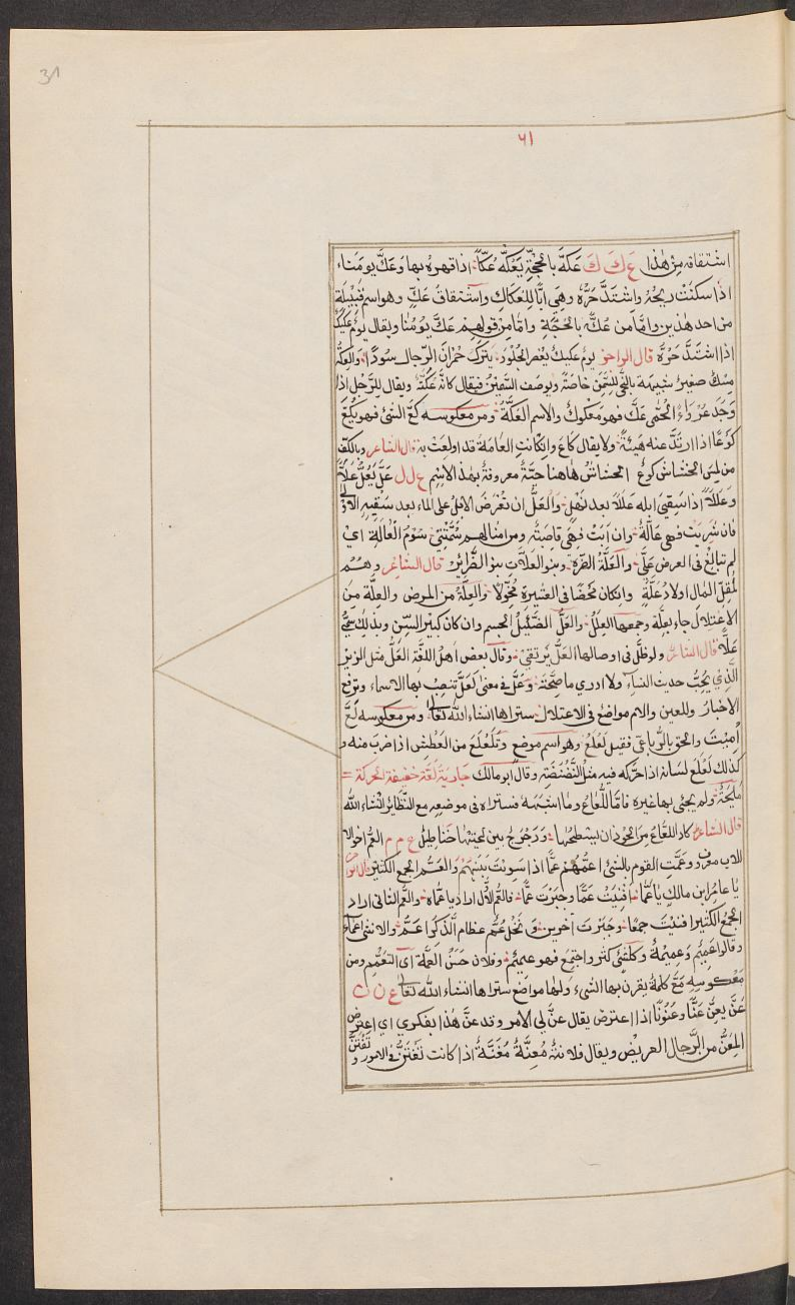 31
٦١
اشتقاقه من هٰذا ع ك ك عَكَّهُ بالحُجَّةِ يَعُكُّهُ عَكّاً اذا قهره بها وَعَكَّ يومنا ء
اذا سكنَتْ ريحُهُ واشتدَّ حَرُّهُ وهى ايّامُ العكاك واشتقاقُ عَكٍّ وهو اسم قبيلة
من احد هٰذين وامّا من عَكَّه بالحُجَّةِ وامّا من قولهم عَكَّ يومُنا ويقال يومٌ عَكيكٌ
اذا اشتدَّ حَرُّهُ قال الراجز يومٌ عكيكٌ يعصر الجلود يترك حُمران الرّجال سُودًا والعكّة
مسكٌ صغيرٌ شبيهة بالنِّحى للسّمن خاصّة ويوصف السّمين فيقال كانّه عُكَّةٌ ويقال للرّجل اذا
وَجَد عُرَواءَ الحُمّى عُكَّ فهو مَعْكُوكٌ والاسم العَكَّةُ ومن معكوسه كَعَّ الشئ فهو يكِعُّ
كَعًّا اذا ارتدَّ عنه هَيبةً ولا يقال كاعَ وان كانت العامة قد اولعَت به قال الشاعر وبالكفّ
من لمس الخشاش كوع الخشاش هاهنا حيّةٌ معروفة بهٰذا الاسم ع ل ل عَلَّ يَعُلُّ عَلًّا
وعَلَلاً اذا سَقىَ ابله عَلَلاً بعد نَهَل والعَلُّ ان تُعْرَضَ الابلُ على الماء بعد سَقيها الاوّل
فان شربَت فهى عالّةٌ وان ابَتْ فهى قاصبةٌ ومن امثالهم سُمْتَنى سَوْمَ العالّةِ اىْ
لم تبالغ فى العرض عَلَىَّ والعَلَّةُ الضرّة وبنو العلاّت بنو الضّرائر قال الشاعر وهُمُ
لمُقلّ المال اولادُ عَلَّةٍ وان كان محضًا فى العشيرة مُخْوِلا والعِلّةُ من المرض والعِلّة من
الاعتلال جاء بعِلّة وجمعها العِلَل والعَلُّ الضَّئيلُ الجسم وان كان كبير السّنّ وبذلك سُمّىَ
عَلًّا قال الشاعر ولو ظلّ فى اوصالها العَلُّ يرتقى وقال بعض اهل اللغة العَلُّ مثل الزير
الّذى يُحِبُّ حديث النساء ولا ادرى ما صحّته وعَلَّ فى معنىٰ لعَلَّ تنصب بها الاسماء وترفع
الاخبار وللعين والام مواضع فى الاعتلال ستراها انشاء الله تعالىٰ ومن معكوسه لَعَّ
اُمِيتَ والحق بالرّباعى فقيل لَعْلَع وهو اسم موضع وتَلَعْلَعَ من العَطش اذا ضربَ منه و
كذلك لَعْلَعَ لسانه اذا حرّكه فيه مثل النَّضْنَضَة وقال ابو مالك جارية لعّة خفيفة الحركة
مليحة ولم يجئ بها غيره فامّا اللُّعاعُ وما اشبهه فستراه فى موضعه مع النظائر انشاء الله
قال الشاعر كاد اللُّعاعُ من الحوذان يسحطها ورجرجٌ بين لحييها خناطيل ع م م العمّ اخو الا
للاب معروف وعَمَّت القوم بالشئ اعُمُّهُمْ عَمًّا اذا سوّيتَ بينَهم والعَمُّ الجمع الكثير قال الراجز
يا عامرُ ابن مالكٍ يا عَمّا افنيتَ عَمًّا وجبَرتَ عَمًّا فالعَمّ الاوّل اراد يا عَمّاه والعَمّ الثانى اراد
الجمع الكثير افنيتَ جمعًا وجَبَرتَ آخرين ونخلٌ عُمٌّ عظام الذَّكَر اَعَمُّ والانثى عَمّاءُ
وقالوا عَميمٌ وعَميمةٌ وكلّ شئ كثر واجتمع فهو عميمٌ وفلان حَسَنُ العِمّة اى التعمُّم ومن
معكوسه مَعَ كلمةٌ يقرن بها الشىء ولها مواضع ستراها انشاء الله تعالىٰ ع ن ن
عَنَّ يعِنُّ عَنًّا وعُنُونًا اذا اعترض يقال عنَّ لى الامر وقد عنَّ هٰذا بفكرى اى اعترض
المِعَنُّ من الرّجال العريض ويقال فلانةُ مُعِنَّةٌ مُفَنَّةٌ اذا كانت تَعْتَنُّ فى الامور و تَفْتَنُّ